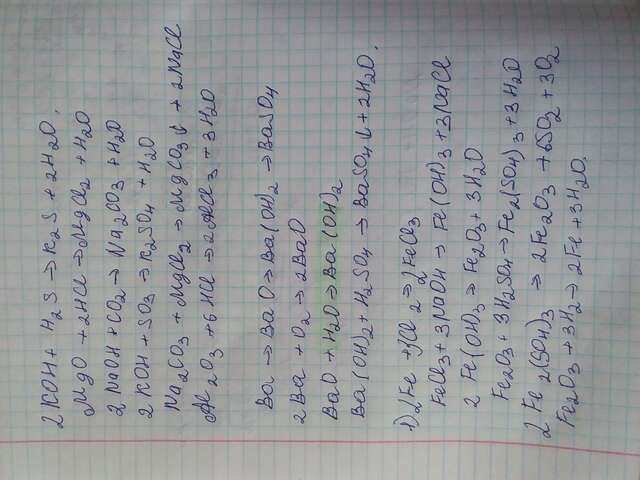 2KOH + H2S → K2S + 2H2O.
MgO + 2HCl → MgCl2 + H2O
2NaOH + CO2 → Na2CO3 + H2O
2KOH + SO3 → K2SO4 + H2O
Na2CO3 + MgCl2 → MgCO3↓ + 2NaCl
Al2O3 + 6HCl → 2AlCl3 + 3H2O
Ba → BaO → Ba(OH)2 → BaSO4
2Ba + O2 → 2BaO
BaO + H2O → Ba(OH)2
Ba(OH)2 + H2SO4 → BaSO4↓ + 2H2O.
1) 2Fe + 3Cl2 → 2FeCl3
FeCl3 + 3NaOH → Fe(OH)3 + 3NaCl
2Fe(OH)3 → Fe2O3 + 3H2O
Fe2O3 + 3H2SO4 → Fe2(SO4)3 + 3H2O
2Fe2(SO4)3 → 2Fe2O3 + 6SO2 + 3O2
Fe2O3 + 3H2 → 2Fe + 3H2O.